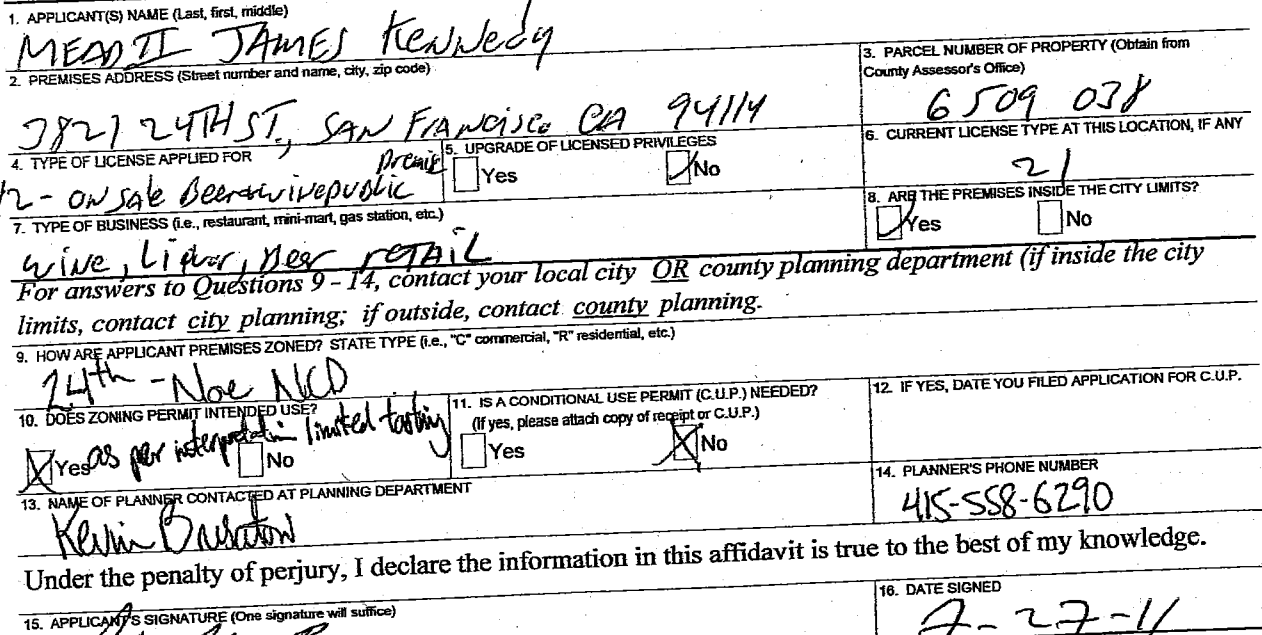 1. APPLICANT(S) NAME (Last, first, middle)
MEAD II JAMES Kennedy
2. PREMISES ADDRESS (Street number and name, city, zip code)
3. PARCEL NUMBER OF PROPERTY (Obtain from
County Assessor's Office)
3821 24TH ST., SAN FRANCISCO CA 94114
6509 038
4. TYPE OF LICENSE APPLIED FOR
42 - ON Sale Beer & wine public premis
5. UPGRADE OF LICENSED PRIVILEGES
Yes No
6. CURRENT LICENSE TYPE AT THIS LOCATION, IF ANY
21
7. TYPE OF BUSINESS (i.e., restaurant, mini-mart, gas station, etc.)
wine, Liquor, Beer retAiL
8. ARE THE PREMISES INSIDE THE CITY LIMITS?
Yes No
For answers to Questions 9 - 14, contact your local city OR county planning department (if inside the city
limits, contact city planning; if outside, contact county planning.
9. HOW ARE APPLICANT PREMISES ZONED? STATE TYPE (i.e., "C" commercial, "R" residential, etc.)
24th - Noe NCD
10. DOES ZONING PERMIT INTENDED USE?
Yes as per interpretation limited tasting
No
11. IS A CONDITIONAL USE PERMIT (C.U.P.) NEEDED?
(If yes, please attach copy of receipt or C.U.P.)
Yes No
12. IF YES, DATE YOU FILED APPLICATION FOR C.U.P.
13. NAME OF PLANNER CONTACTED AT PLANNING DEPARTMENT
Kevin
14. PLANNER'S PHONE NUMBER
415-558-6290
Under the penalty of perjury, I declare the information in this affidavit is true to the best of my knowledge.
15. APPLICANT'S SIGNATURE (One signature will suffice)
16. DATE SIGNED
7-27-11